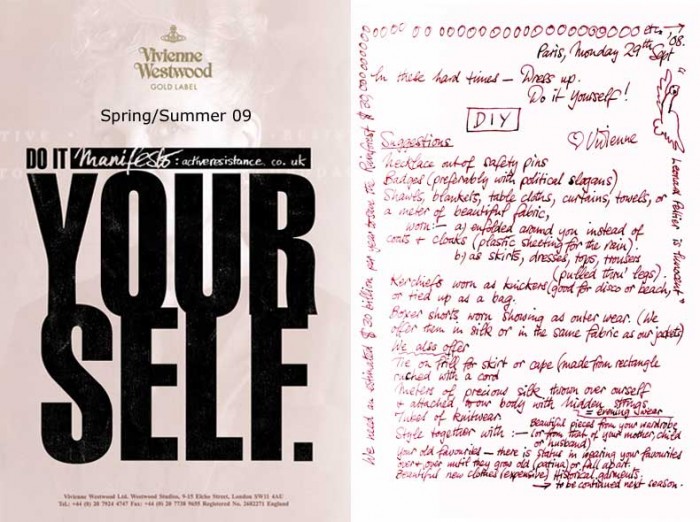 Vivienne
Westwood
GOLD LABEL
Spring/Summer 09
DO IT Manifesto: activeresistance.co.uk
YOUR
SELF.
Vivienne Westwood Ltd. Westwood Studios, 9-15 Elcho Street, London SW11 4AU
Tel.: +44 (0) 20 7924 4747 Fax: +44 (0) 20 7738 9655 Registered No. 2682271 England
etc '08.
Paris, Monday 29th Sept
In these hard times – Dress up.
Do it Yourself!
DIY
♡ Vivienne
Suggestions
Necklace out of safety pins
Badges (preferably with political slogans)
Shawls, blankets, table cloths, curtains, towels, or
a meter of beautiful fabric,
worn:– a) enfolded around you instead of
coats + cloaks (plastic sheeting for the rain).
b) as skirts, dresses, tops, trousers
(pulled thru' legs).
Kerchiefs worn as knickers (good for disco or beach,
or tied up as a bag.
Boxer shorts, worn showing as outer wear. (We
offer them in silk or in the same fabric as our jackets)
We also offer
Tie on frill for skirt or cape (made from rectangle
rushed with a cord
Meters of precious silk thrown over ourself
+ attached to our body with hidden strings
= evening swear
Tubes of knitwear
Beautiful pieces from your wardrobe
Style together with :– (or from that of your mother, child
or husband)
Your old favourites – there is status in wearing your favourites
over + over until they grow old (patina) or fall apart.
Beautiful new clothes (expensive) Historical garments.
→ to be continued next season.
We need an estimated $30 billion per year to save the Rainforest $30,000,000,000
Leonard Peltier is innocent"